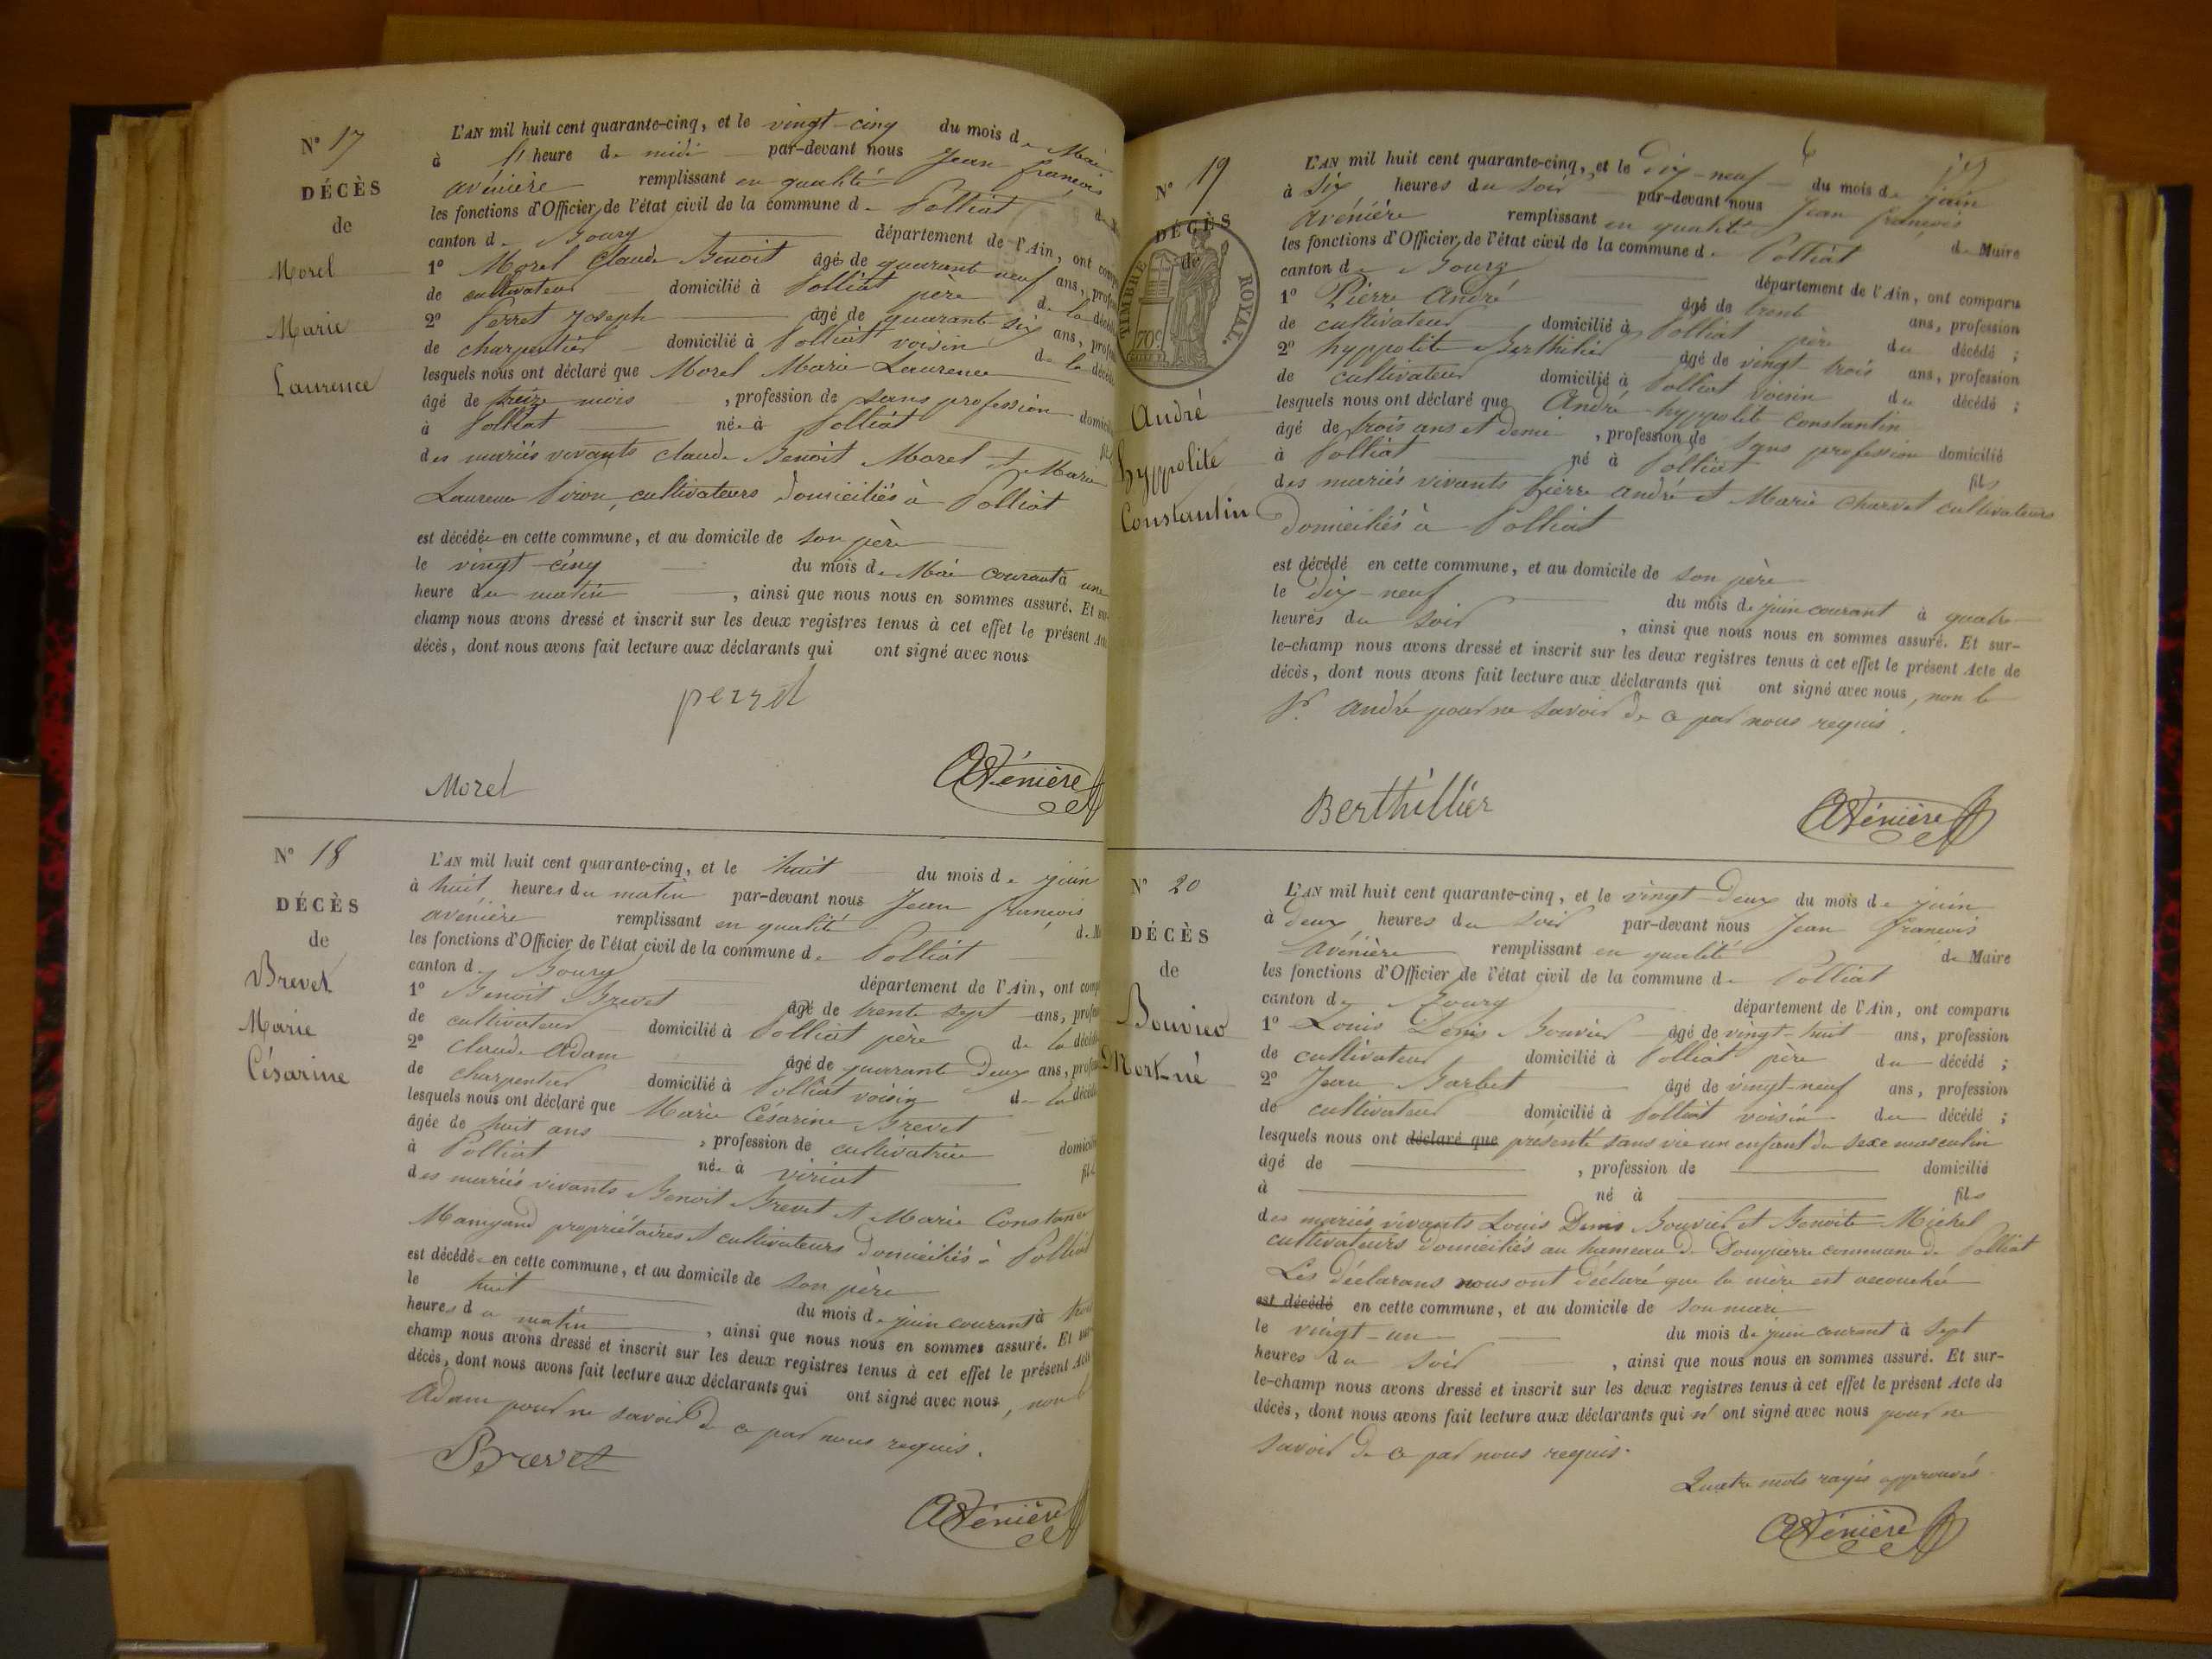 N° 17
DÉCÈS
de
Morel
Marie
Laurence
L'AN mil huit cent quarante-cinq, et le vingt-cinq du mois de Mai
à heure de midi par-devant nous Jean françois
avénière remplissant en qualité de
les fonctions d'Officier de l'état civil de la commune de Polliat
canton de Bourg département de l'Ain, ont
1° Morel Claude Benoit âgé de quarante neuf ans,
de cultivateur domicilié à Polliat père de la
2° Perret Joseph âgé de quarante six ans,
de charpentier domicilié à Polliat voisin de la
lesquels nous ont déclaré que Morel Marie Laurence
âgé de treize mois, profession de sans profession
à Polliat née à Polliat
des mariés vivants claude Benoit Morel et Marie
Laurence Piron, cultivateurs domiciliés à Polliat
est décédée en cette commune, et au domicile de son père
le vingt-cinq du mois de Mai courant à une
heure du matin, ainsi que nous nous en sommes assuré. Et sur-
champ nous avons dressé et inscrit sur les deux registres tenus à cet effet le présent Acte
décès, dont nous avons fait lecture aux déclarants qui ont signé avec nous
perret
Morel
AVénière
N° 18
DÉCÈS
de
Brevet
Marie
Césarine
L'AN mil huit cent quarante-cinq, et le huit du mois de juin
à huit heures du matin par-devant nous Jean françois
avénière remplissant en qualité de
les fonctions d'Officier de l'état civil de la commune de Polliat
canton de Bourg département de l'Ain, ont
1° Benoit Brevet âgé de trente sept ans,
de cultivateur domicilié à Polliat père de la
2° claude Adam âgé de quarante deux ans,
de charpentier domicilié à Polliat voisin de la
lesquels nous ont déclaré que Marie Césarine Brevet
âgée de huit ans, profession de cultivatrice
à Polliat née à viriat
des mariés vivants Benoit Brevet et Marie Constance
propriétaires et cultivateurs domiciliés à Polliat
est décédée en cette commune, et au domicile de son père
le huit du mois de juin courant à
heures du matin, ainsi que nous nous en sommes assuré. Et
champ nous avons dressé et inscrit sur les deux registres tenus à cet effet le présent Acte
décès, dont nous avons fait lecture aux déclarants qui ont signé avec nous, non le
Adam pour ne savoir de ce par nous requis.
Brevet
AVénière
6
N° 19
DÉCÈS
de
TIMBRE ROYAL.
70c
André
hyppolite
Constantin
L'AN mil huit cent quarante-cinq, et le Dix-neuf du mois de juin
à six heures du soir par-devant nous Jean françois
avénière remplissant en qualité de Maire
les fonctions d'Officier de l'état civil de la commune de Polliat
canton de Bourg département de l'Ain, ont comparu
1° Pierre André âgé de trente ans, profession
de cultivateur domicilié à Polliat père du décédé ;
2° hyppolite Berthilier âgé de vingt trois ans, profession
de cultivateur domicilié à Polliat voisin du décédé ;
lesquels nous ont déclaré que André hyppolite constantin
âgé de trois ans et demi, profession de sans profession domicilié
à Polliat né à Polliat fils
des mariés vivants Pierre André et Marie Charvet cultivateurs
domiciliés à Polliat
est décédé en cette commune, et au domicile de son père
le Dix-neuf du mois de juin courant à quatre
heures du soir, ainsi que nous nous en sommes assuré. Et sur-
le-champ nous avons dressé et inscrit sur les deux registres tenus à cet effet le présent Acte de
décès, dont nous avons fait lecture aux déclarants qui ont signé avec nous, non le
Sr. André pour ne savoir de ce par nous requis.
Berthillier
AVénière
N° 20
DÉCÈS
de
Bouvier
Mort-né
L'AN mil huit cent quarante-cinq, et le vingt-Deux du mois de juin
à deux heures du soir par-devant nous Jean françois
avénière remplissant en qualité de Maire
les fonctions d'Officier de l'état civil de la commune de Polliat
canton de Bourg département de l'Ain, ont comparu
1° Louis Denis Bouvier âgé de vingt-huit ans, profession
de cultivateur domicilié à Polliat père du décédé ;
2° Jean Barbet âgé de vingt-neuf ans, profession
de cultivateur domicilié à Polliat voisin du décédé ;
lesquels nous ont déclaré que présenté sans vie un enfant du sexe masculin
âgé de , profession de domicilié
à né à fils
des mariés vivants Louis Denis Bouvier et Benoite Michel
cultivateurs domiciliés au hameau de Donpierre commune de Polliat
Les déclarans nous ont déclaré que la mère est accouchée
est décédé en cette commune, et au domicile de son mari
le vingt-un du mois de juin courant à sept
heures du soir, ainsi que nous nous en sommes assuré. Et sur-
le-champ nous avons dressé et inscrit sur les deux registres tenus à cet effet le présent Acte de
décès, dont nous avons fait lecture aux déclarants qui n'ont signé avec nous pour ne
savoir de ce par nous requis.
Quatre mots rayés approuvés
AVénière